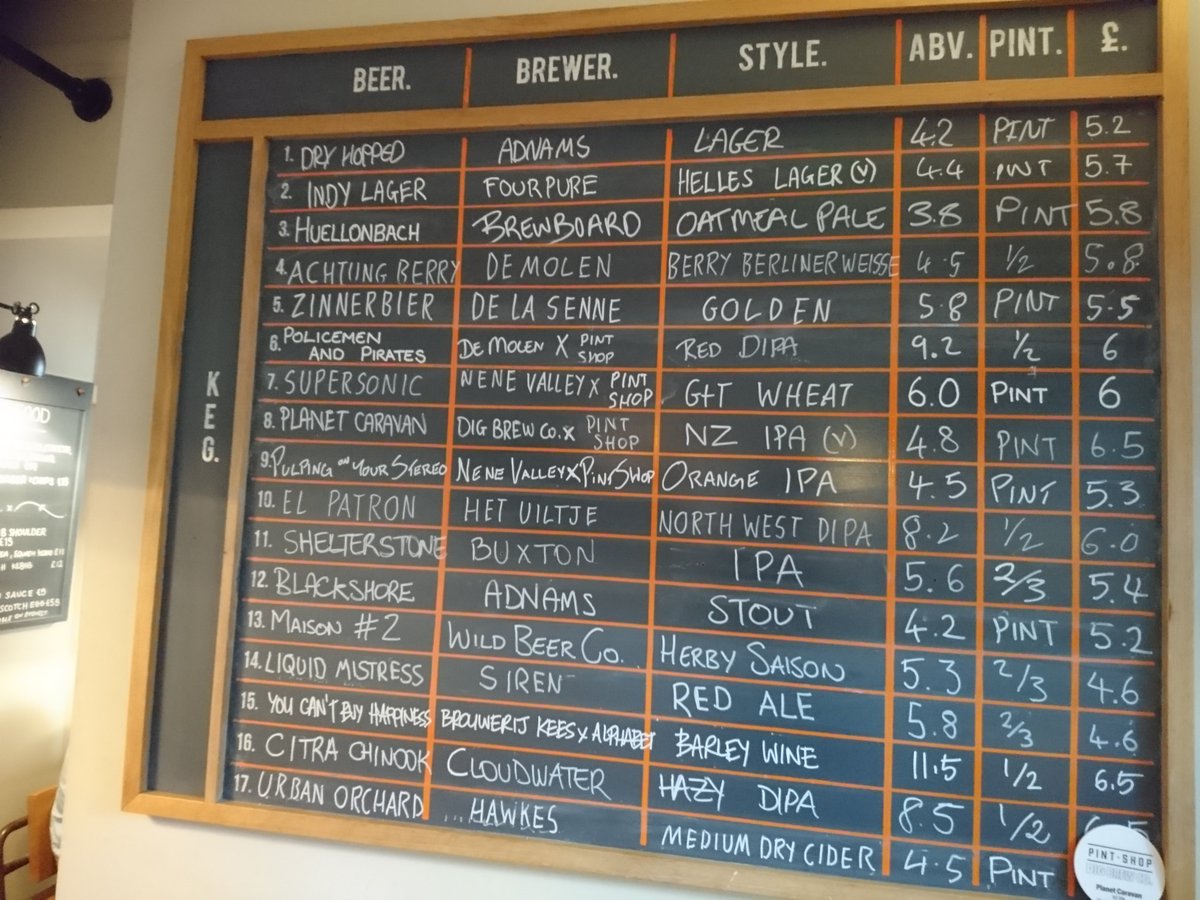 BEER. BREWER. STYLE. ABV. PINT. £.
KEG.
1. DRY HOPPED ADNAMS LAGER 4.2 PINT 5.2
2. INDY LAGER FOURPURE HELLES LAGER (V) 4.4 PINT 5.7
3. HUELLONBACH BREWBOARD OATMEAL PALE 3.8 PINT 5.8
4. ACHTUNG BERRY DE MOLEN BERRY BERLINER WEISSE 4.5 1/2 5.8
5. ZINNERBIER DE LA SENNE GOLDEN 5.8 PINT 5.5
6. POLICEMEN AND PIRATES DE MOLEN X PINT SHOP RED DIPA 9.2 1/2 6
7. SUPERSONIC NENE VALLEY X PINT SHOP G+T WHEAT 6.0 PINT 6
8. PLANET CARAVAN DIG BREW CO. X PINT SHOP NZ IPA (V) 4.8 PINT 6.5
9. PULPING ON YOUR STEREO NENE VALLEY X PINT SHOP ORANGE IPA 4.5 PINT 5.3
10. EL PATRON HET UILTJE NORTH WEST DIPA 8.2 1/2 6.0
11. SHELTERSTONE BUXTON IPA 5.6 2/3 5.4
12. BLACKSHORE ADNAMS STOUT 4.2 PINT 5.2
13. MAISON #2 WILD BEER CO. HERBY SAISON 5.3 2/3 4.6
14. LIQUID MISTRESS SIREN RED ALE 5.8 2/3 4.6
15. YOU CAN'T BUY HAPPINESS BROUWERIJ KEES X ALPHABET BARLEY WINE 11.5 1/2 6.5
16. CITRA CHINOOK CLOUDWATER HAZY DIPA 8.5 1/2
17. URBAN ORCHARD HAWKES MEDIUM DRY CIDER 4.5 PINT
PINT-SHOP
DIG BREW CO.
Planet Caravan
SHOULDER
SAUCE
SCOTCH EGG